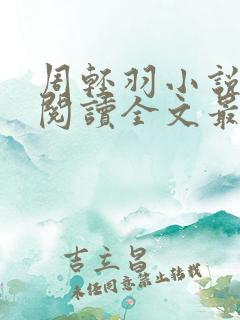 周輕羽小說
閱讀全文最
吉立昌
未经同意禁止转载